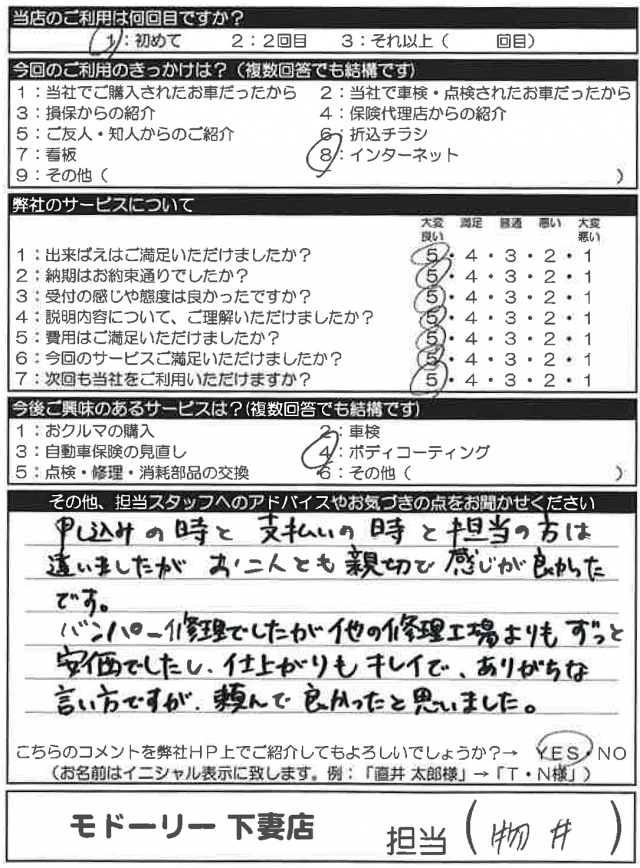 当店のご利用は何回目ですか？
1：初めて 2：2回目 3：それ以上（ 回目）
今回のご利用のきっかけは？（複数回答でも結構です）
1：当社でご購入されたお車だったから 2：当社で車検・点検されたお車だったから
3：損保からの紹介 4：保険代理店からの紹介
5：ご友人・知人からのご紹介 6：折込チラシ
7：看板 8：インターネット
9：その他（ ）
弊社のサービスについて
大変良い 満足 普通 悪い 大変悪い
1：出来ばえはご満足いただけましたか？ 5・4・3・2・1
2：納期はお約束通りでしたか？ 5・4・3・2・1
3：受付の感じや態度は良かったですか？ 5・4・3・2・1
4：説明内容について、ご理解いただけましたか？ 5・4・3・2・1
5：費用はご満足いただけましたか？ 5・4・3・2・1
6：今回のサービスご満足いただけましたか？ 5・4・3・2・1
7：次回も当社をご利用いただけますか？ 5・4・3・2・1
今後ご興味のあるサービスは？（複数回答でも結構です）
1：おクルマの購入 2：車検
3：自動車保険の見直し 4：ボディコーティング
5：点検・修理・消耗部品の交換 6：その他（ ）
その他、担当スタッフへのアドバイスやお気づきの点をお聞かせください
申し込みの時と 支払いの時と担当の方は
違いましたが お二人とも親切で感じが良かった
です。
バンパー修理でしたが他の修理工場よりもずっと
安価でしたし、仕上がりもキレイで、ありがちな
言い方ですが、頼んで良かったと思いました。
こちらのコメントを弊社HP上でご紹介してもよろしいでしょうか？→ YES・NO
（お名前はイニシャル表示に致します。例：「直井 太郎様」→「T・N様」）
モドーリー下妻店 担当（物井）